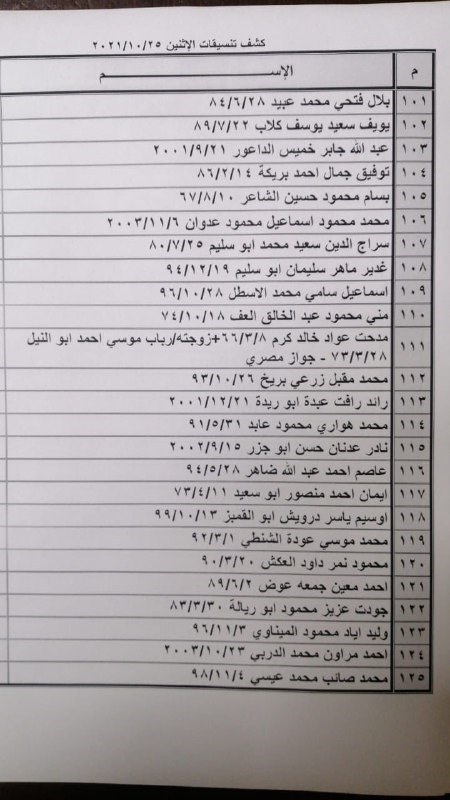 كشف تنسيقات الإثنين ٢٠٢١/١٠/٢٥
م الإســـــــــم
١٠١ بلال فتحي محمد عبيد ٨٤/٦/٢٨
١٠٢ يويف سعيد يوسف كلاب ٨٩/٧/٢٢
١٠٣ عبد الله جابر خميس الداعور ٢٠٠١/٩/٢١
١٠٤ توفيق جمال احمد بريكة ٨٦/٢/١٤
١٠٥ بسام محمود حسين الشاعر ٦٧/٨/١٠
١٠٦ محمد محمود اسماعيل محمود عدوان ٢٠٠٣/١١/٦
١٠٧ سراج الدين سعيد محمد ابو سليم ٨٠/٧/٢٥
١٠٨ غدير ماهر سليمان ابو سليم ٩٤/١٢/١٩
١٠٩ اسماعيل سامي محمد الاسطل ٩٦/١٠/٢٨
١١٠ مني محمود عبد الخالق العف ٧٤/١٠/١٨
١١١ مدحت عواد خالد كرم ٦٦/٣/٨+زوجته/رباب موسي احمد ابو النيل
٧٣/٣/٢٨ - جواز مصري
١١٢ محمد مقبل زرعي بريخ ٩٣/١٠/٢٦
١١٣ رائد رافت عبدة ابو ريدة ٢٠٠١/١٢/٢١
١١٤ محمد هواري محمود عابد ٩١/٥/٣١
١١٥ نادر عدنان حسن ابو جزر ٢٠٠٢/٩/١٥
١١٦ عاصم احمد عبد الله ضاهر ٩٤/٥/٢٨
١١٧ ايمان احمد منصور ابو سعيد ٧٣/٤/١١
١١٨ اوسيم ياسر درويش ابو القمبز ٩٩/١٠/١٣
١١٩ محمد موسي عودة الشنطي ٩٢/٣/١
١٢٠ محمود نمر داود العكش ٩٠/٣/٢٠
١٢١ احمد معين جمعه عوض ٨٩/٦/٢
١٢٢ جودت عزيز محمود ابو ريالة ٨٣/٣/٣٠
١٢٣ وليد اياد محمود الميناوي ٩٦/١١/٣
١٢٤ احمد مراون محمد الدربي ٢٠٠٣/١٠/٢٣
١٢٥ محمد صائب محمد عيسي ٩٨/١١/٤